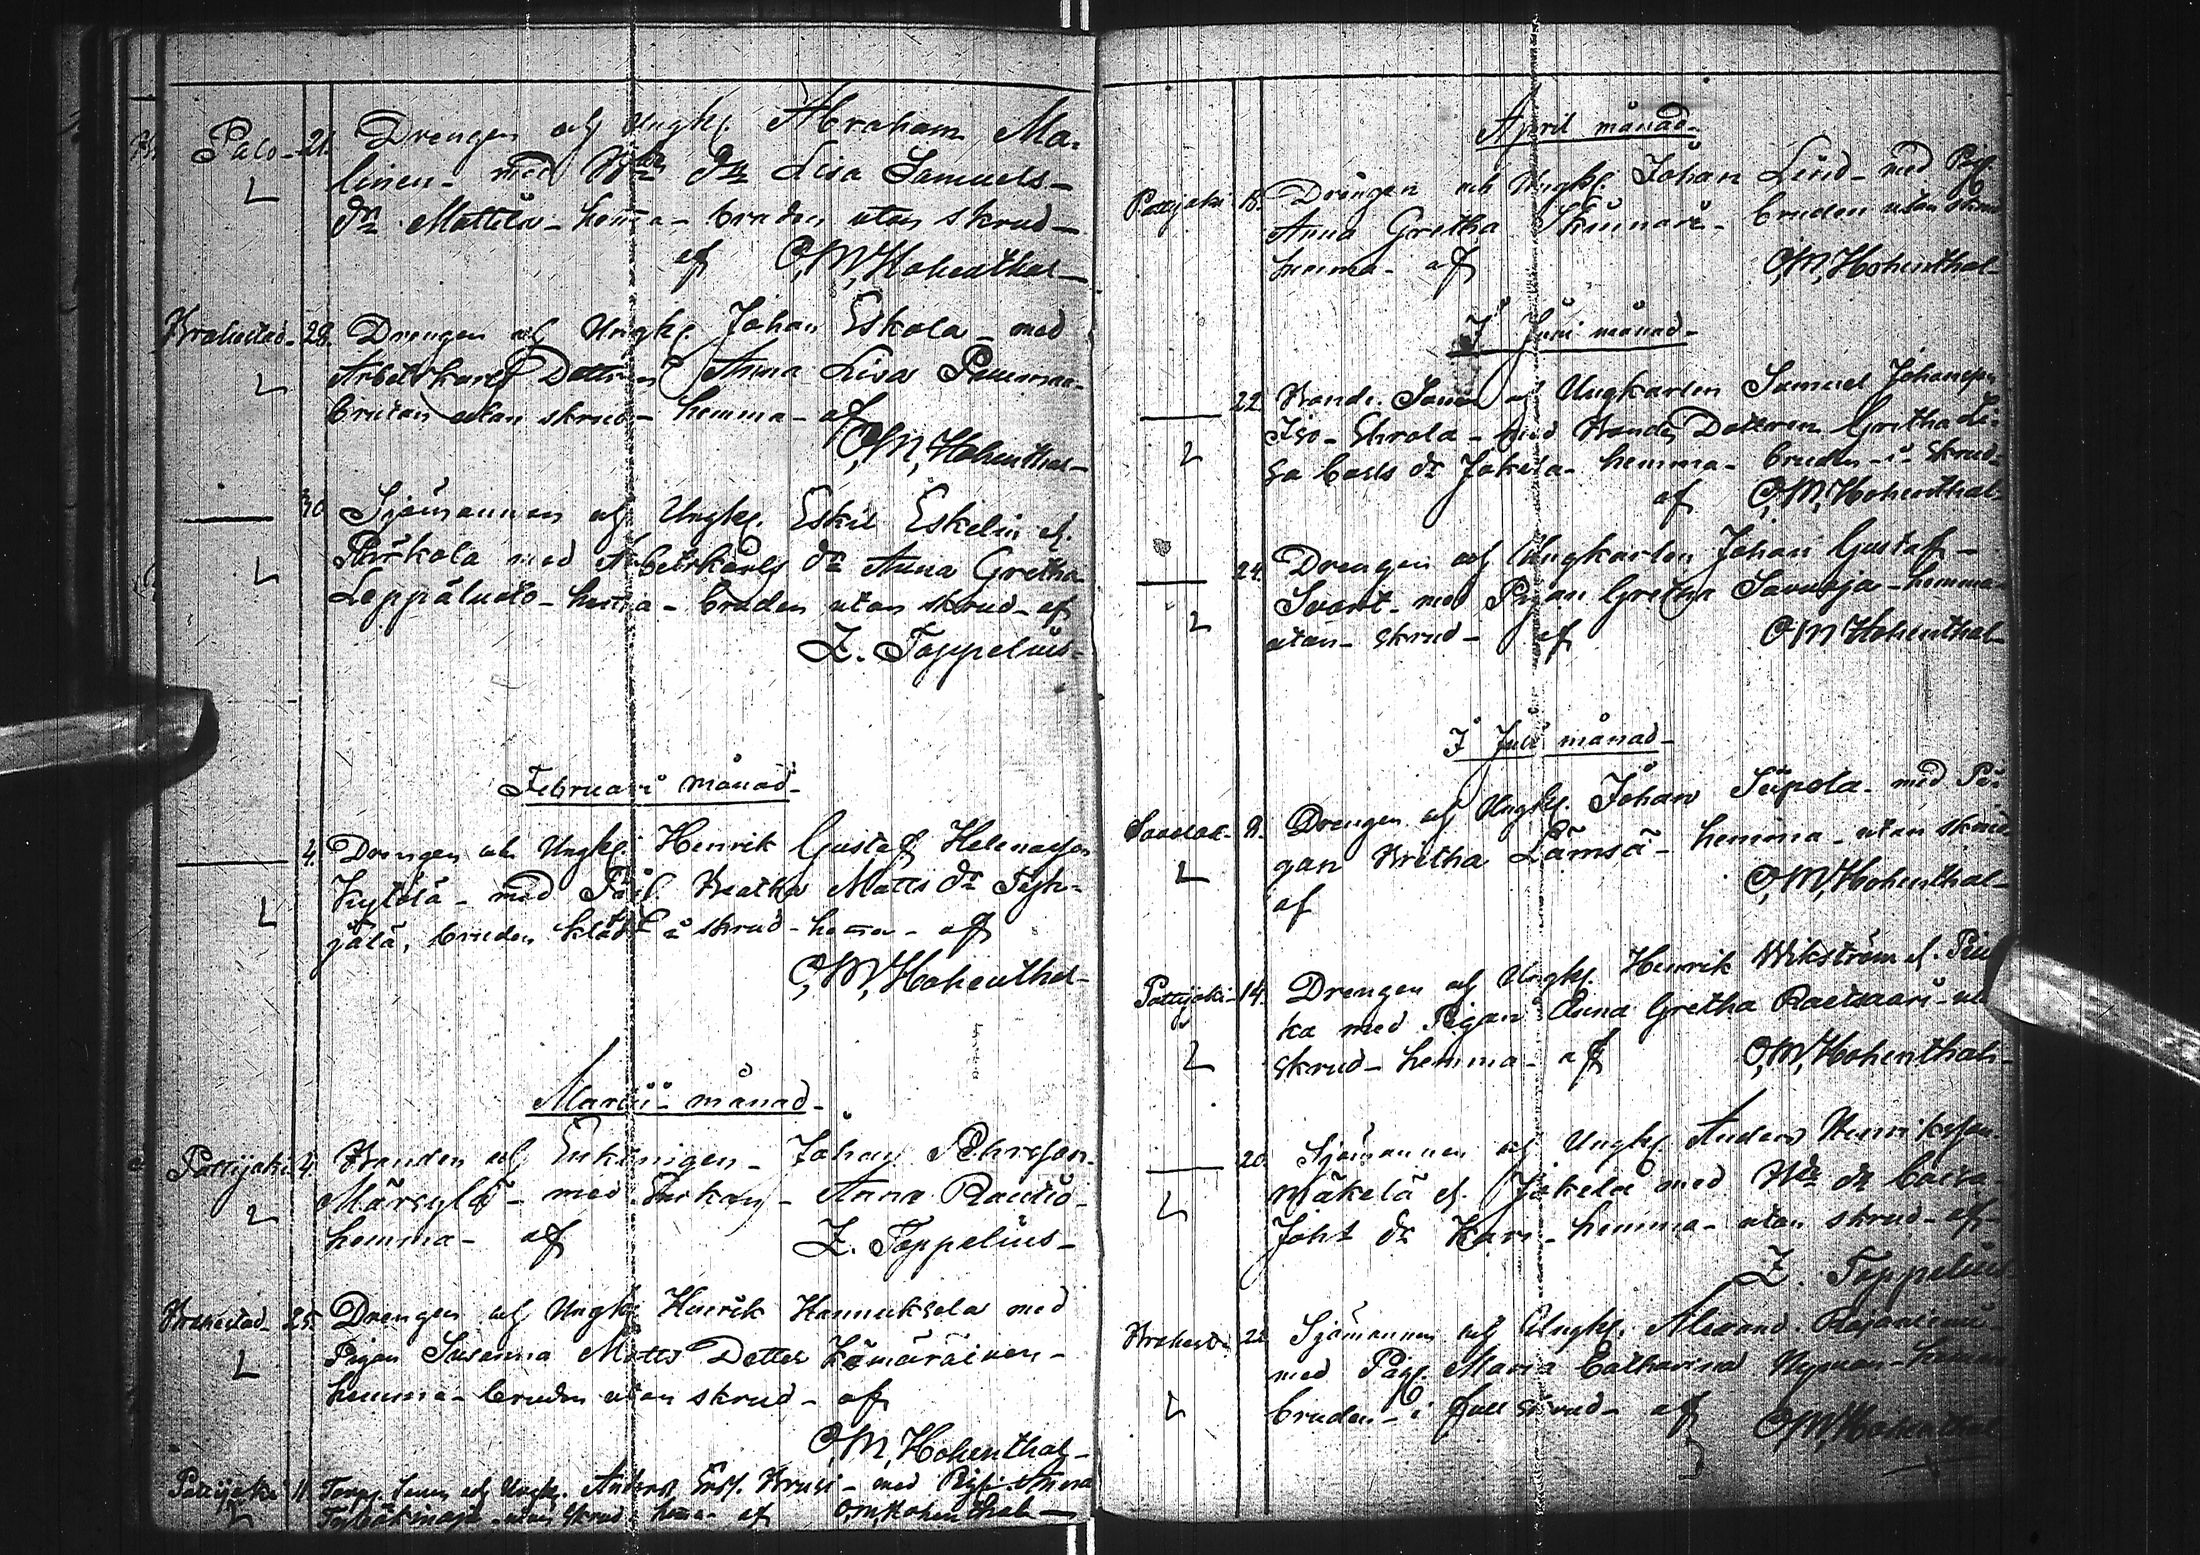 Palo - 21. Drengen och Ungkl. Abraham Ma-
linen - med Bde dr Lisa Samuels -
dr Mattila - hemma - bruden utan skrud -
af C, M, Hohenthal -
Brahestad - 28. Drengen och Ungkl. Johan Eskola - med
Arbetskarls Dottren Anna Lisa
bruden utan skrud - hemma - af
C, M, Hohenthal -
30. Sjömannen och Ungkl. Eskil Eskelin el.
Pirkola med Arbetskarls dr Anna Gretha
Leppäluoto - hemma - bruden utan skrud - af
Z. Toppelius -
Februari månad -
4. Drengen och Ungkl. Henrik Gustaf Helenasson
Kytölä - med Pig. Beatha Matts dr
jälä, bruden klädd i skrud - hemma - af
C, M, Hohenthal -
Martii månad -
Pattijoki 4. Bonden och Enklingen - Johan Pehrsson
Märsylä - med Enkan - Anna Rautio -
hemma - af Z. Toppelius -
Brahestad - 25. Drengen och Ungkl Henrik Hannuksela med
Pigan Susanna Matts Dotter Kämäräinen -
hemma - bruden utan skrud - af
C, M, Hohenthal -
Pattijoki 11. Torp. sonen och Ungk. Anders Krusi - med Pig. Anna
utan skrud - hemma - af C, M, Hohenthal -
April månad -
Pattijoki - 15. Drengen och Ungkl. Johan Lind - med Pig.
Anna Gretha Skinnari - bruden utan skrud
hemma - af C, M, Hohenthal -
I Juni månad -
22. Bonde Sonen och Ungkarlen Samuel Johansson
Iso - Ehrola - med Bonde Dotteren Gretha Li-
sa Carls dr Jokela - hemma - bruden - i skrud -
af C, M, Hohenthal
24. Drengen och Ungkarlen Johan Gustaf -
Svart - med Pigan Gretha Savuoja - hemma -
utan - skrud - af C, M, Hohenthal -
I Julii månad -
Saarelak - 9. Drengen och Ungkl. Johan Siipola - med Pi-
gan Britha Lämsä - hemma - utan skrud
af C, M, Hohenthal -
Pattijoki - 14. Drengen och Ungkl. Henrik Wikström el.
ka med Pigan Anna Gretha
skrud - hemma - af C, M, Hohenthal -
20. Sjömannen och Ungkl. Anders Henriksson
Mäkelä el. Jokela med Bde dr Caisa -
Joh: dr Kari - hemma - utan skrud - af
Z. Toppelius
Brahestd. 22. Sjömannen och Ungkl. Alexand.
med Pig. Maria Catharina Nyman - hemma
bruden - i full skrud - af C, M, Hohenthal